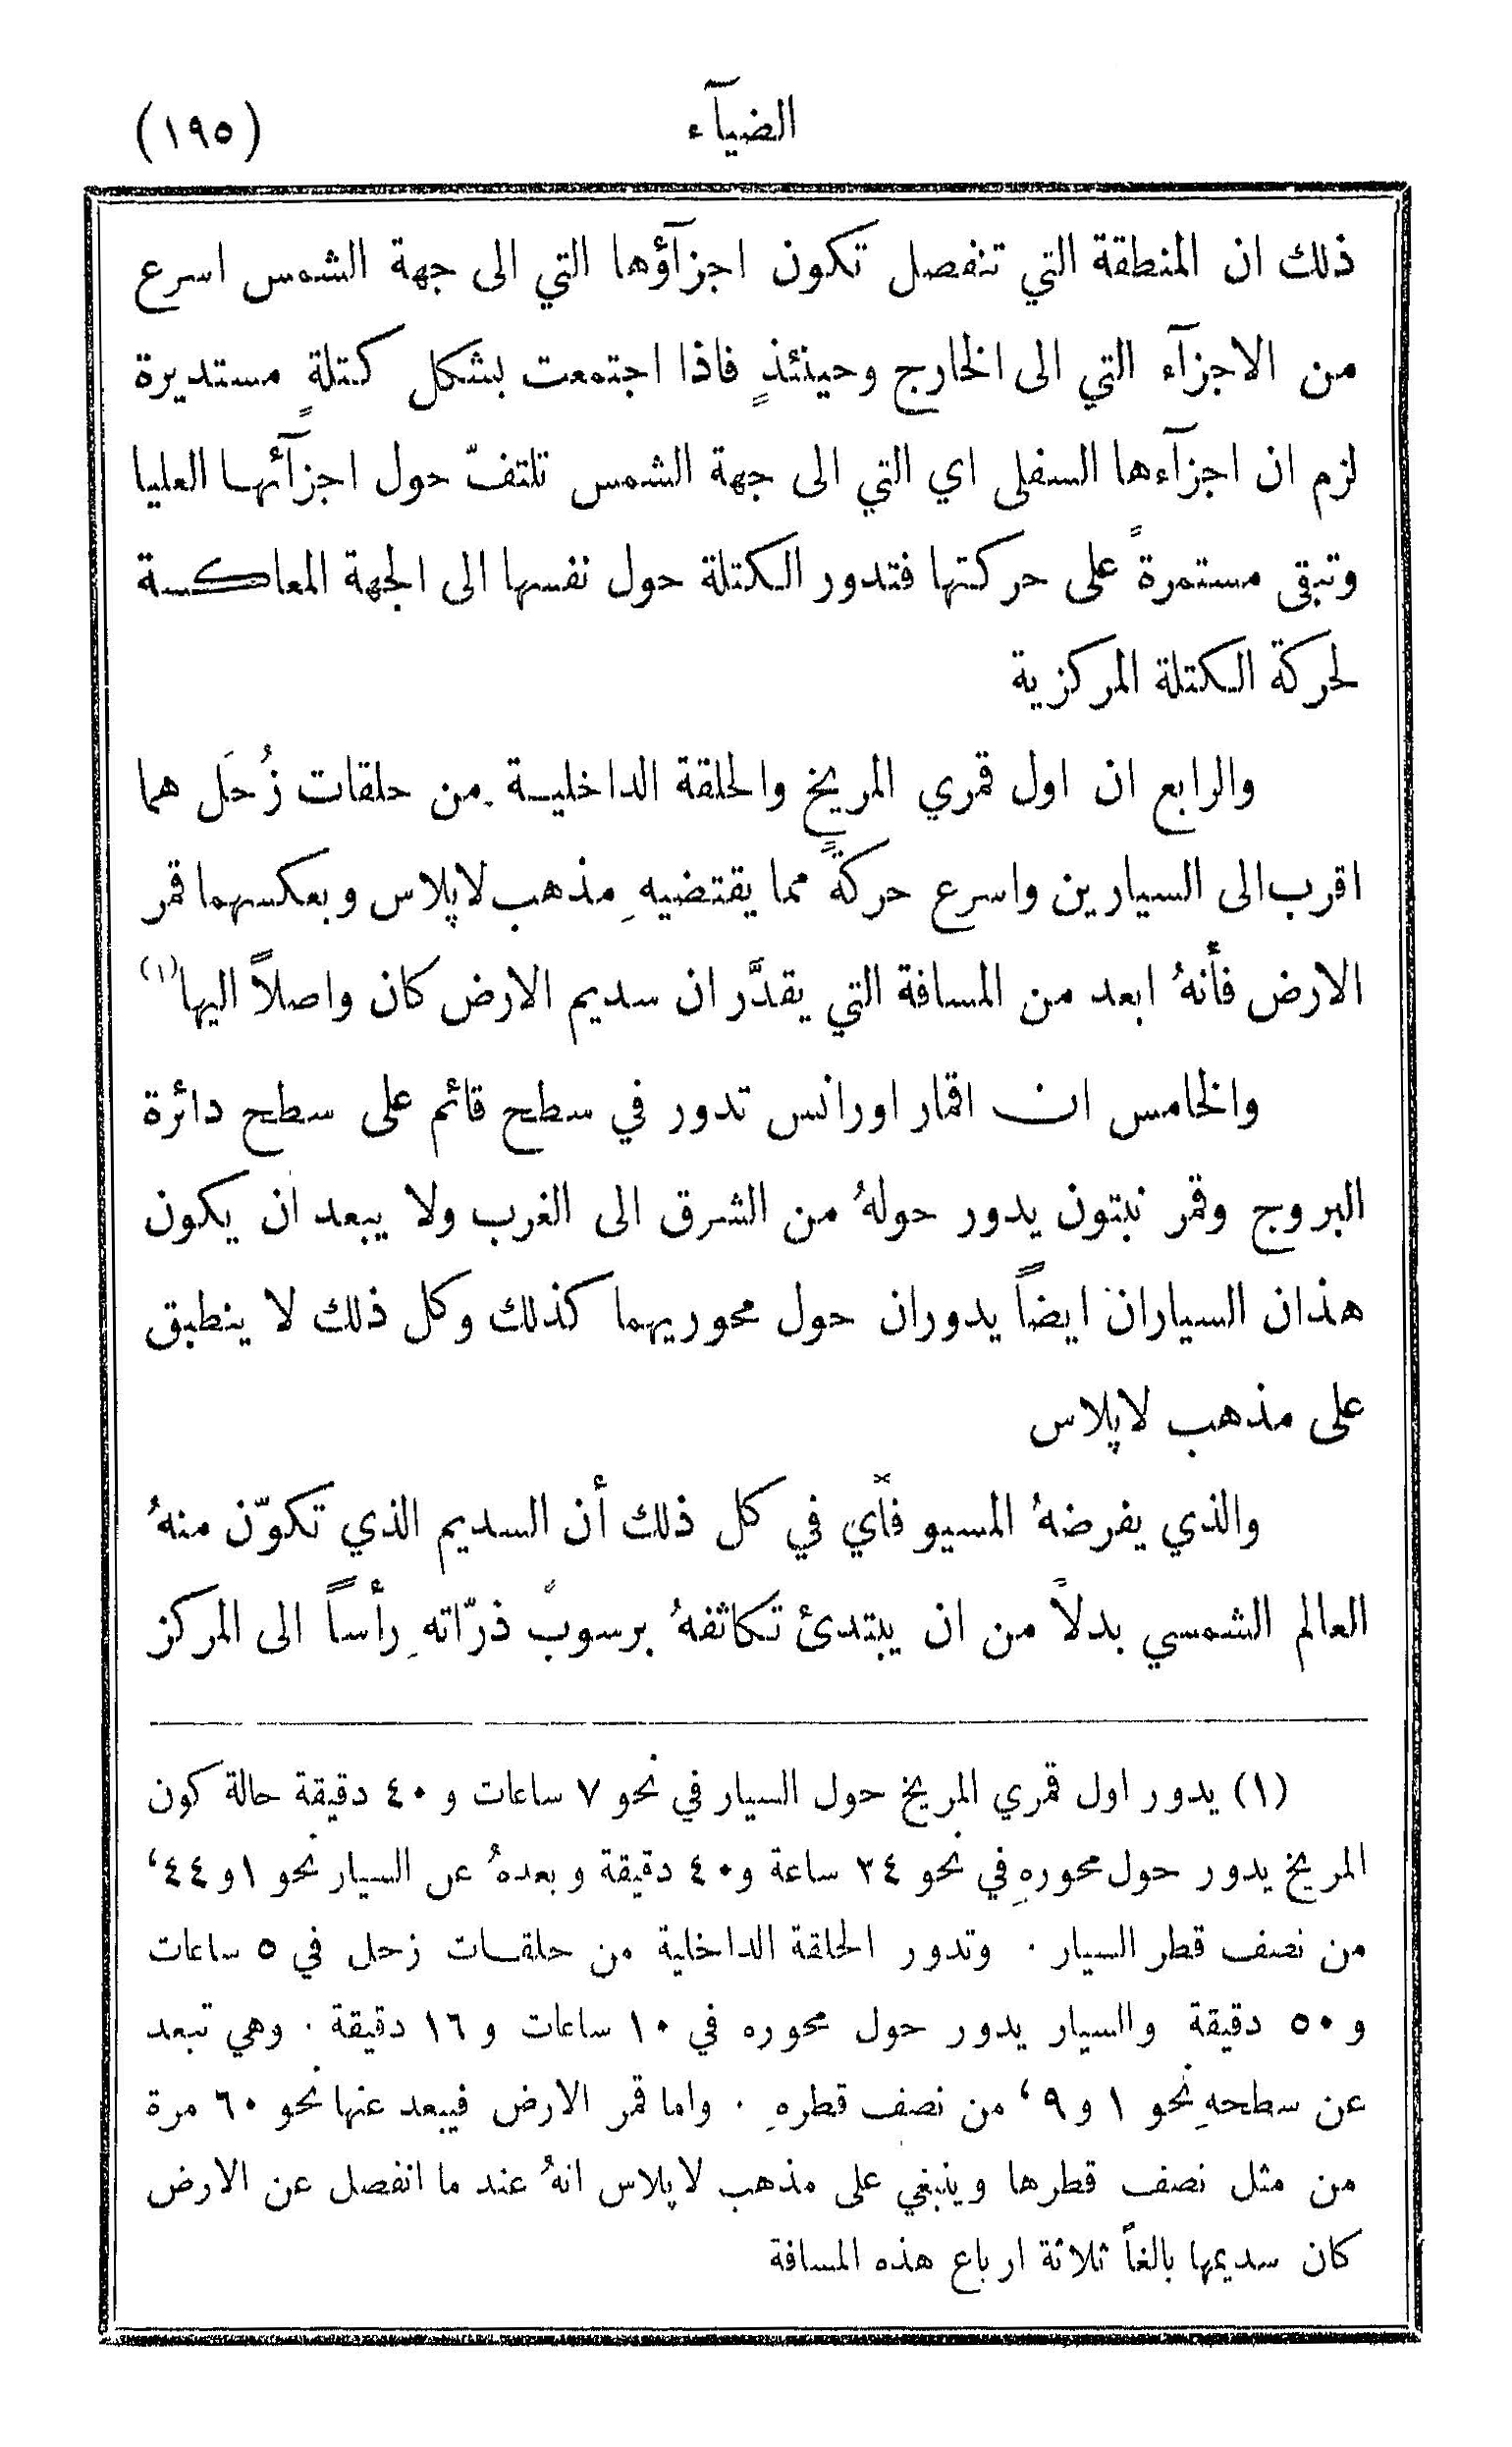 الضيآء
(١٩٥)
ذلك ان المنطقة التي تنفصل تكون اجزآؤها التي الى جهة الشمس اسرع
من الاجزآء التي الى الخارج وحينئذٍ فاذا اجتمعت بشكل كتلةٍ مستديرة
لزم ان اجزآءها السفلى اي التي الى جهة الشمس تلتفّ حول اجزآئها العليا
وتبقى مستمرةً على حركتها فتدور الكتلة حول نفسها الى الجهة المعاكسة
لحركة الكتلة المركزية
والرابع ان اول قمري المريخ والحلقة الداخلية من حلقات زُحَل هما
اقرب الى السيارين واسرع حركةً مما يقتضيهِ مذهب لاپلاس وبعكسهما قمر
الارض فأنهُ ابعد من المسافة التي يقدَّر ان سديم الارض كان واصلاً اليها (١)
والخامس ان اقمار اورانس تدور في سطح قائم على سطح دائرة
البروج وقمر نبتون يدور حولهُ من الشرق الى الغرب ولا يبعد ان يكون
هذان السياران ايضاً يدوران حول محوريهما كذلك وكل ذلك لا ينطبق
على مذهب لاپلاس
والذي يفرضهُ المسيو فآي في كل ذلك أن السديم الذي تكوّن منهُ
العالم الشمسي بدلاً من ان يبتدئ تكاثفهُ برسوب ذرّاتهِ رأساً الى المركز
(١) يدور اول قمري المريخ حول السيار في نحو ٧ ساعات و ٤٠ دقيقة حالة كون
المريخ يدور حول محورهِ في نحو ٢٤ ساعة و٤٠ دقيقة وبعدهُ عن السيار نحو ١و٤٤‘
من نصف قطر السيار . وتدور الحلقة الداخلية من حلقات زحل في ٥ ساعات
و ٥٠ دقيقة والسيار يدور حول محوره في ١٠ ساعات و ١٦ دقيقة . وهي تبعد
عن سطحهِ نحو ١ و٩‘ من نصف قطرهِ . واما قمر الارض فيبعد عنها نحو ٦٠ مرة
من مثل نصف قطرها وينبغي على مذهب لاپلاس انهُ عند ما انفصل عن الارض
كان سديمها بالغاً ثلاثة ارباع هذه المسافة